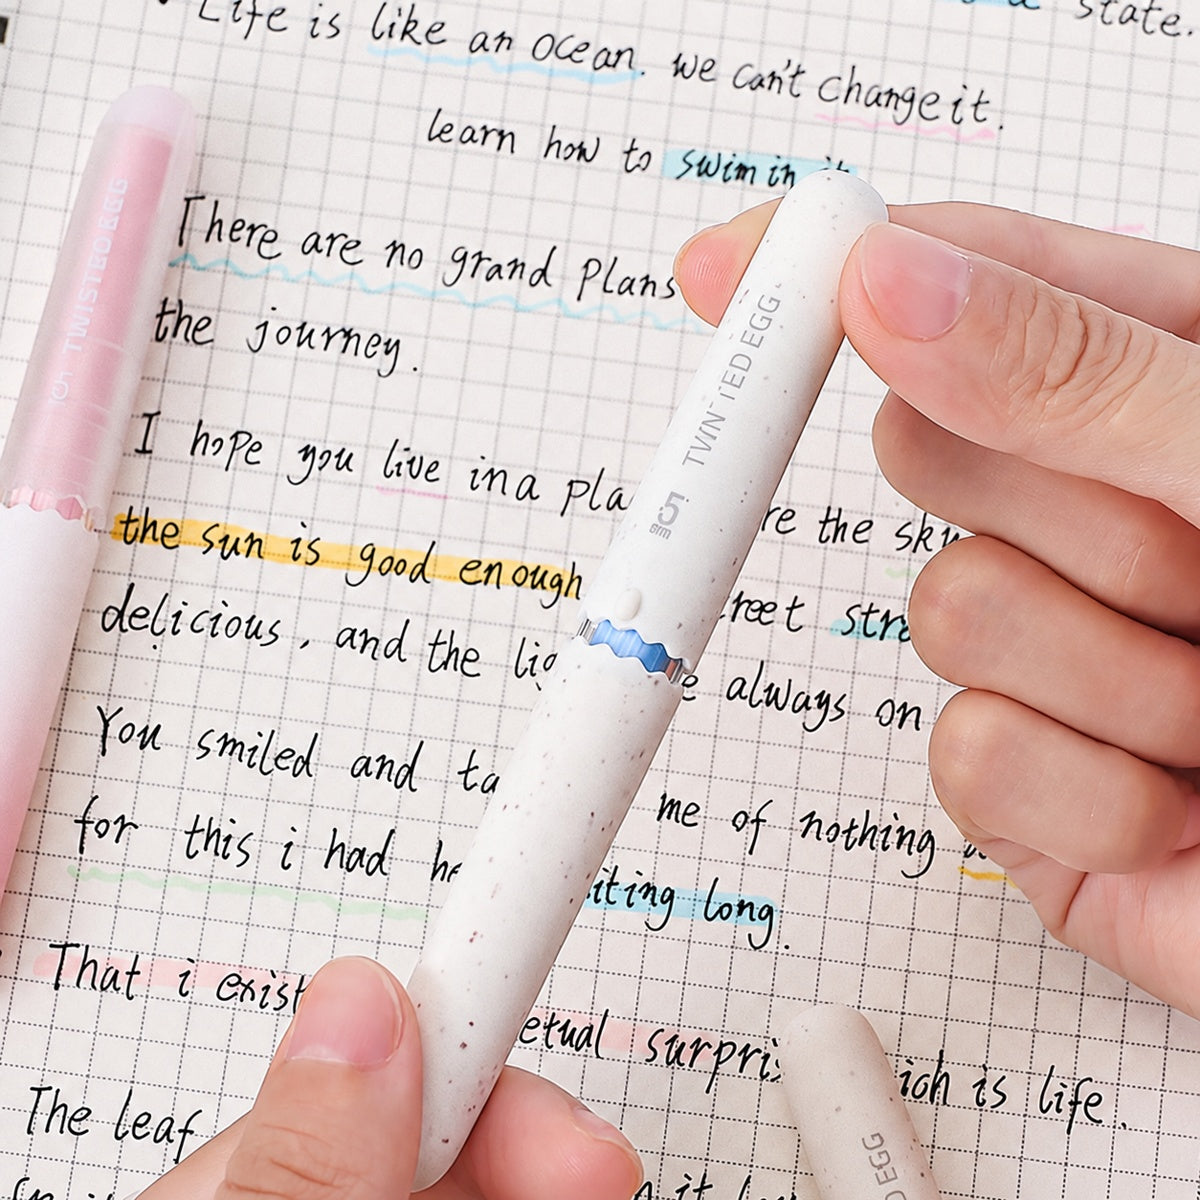 state.
Life is like an ocean. we can't change it.
learn how to swim in it
There are no grand plans
the journey.
I hope you live in a pla re the sky
the sun is good enough reet stra
delicious, and the lig e always on
You smiled and ta me of nothing
for this i had he iting long.
That i exist etual surpris ich is life.
The leaf
it
TWISTED EGG
TWISTED EGG
5mm
D EGG